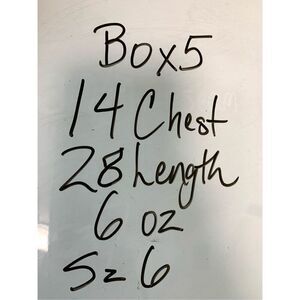 Box5
14 Chest
28 Length
6 oz
Sz 6